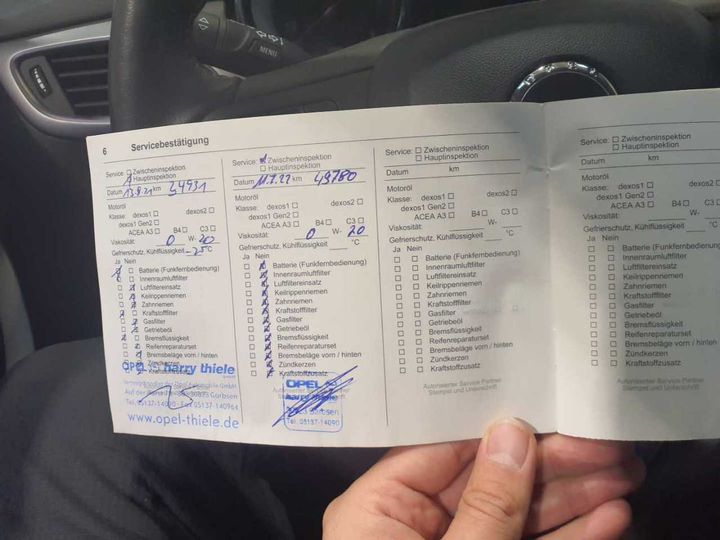 MENU
6 Servicebestätigung
Service: Zwischeninspektion
Hauptinspektion
Datum 13.9.21 km
Motoröl
Klasse: dexos1 dexos2
dexos1 Gen2
ACEA A3 B4 C3
Viskosität: 0 W- 20
Gefrierschutz, Kühlflüssigkeit -25 °C
Ja Nein
Batterie (Funkfernbedienung)
Innenraumluftfilter
Luftfiltereinsatz
Keilrippenriemen
Zahnriemen
Kraftstofffilter
Gasfilter
Getriebeöl
Bremsflüssigkeit
Reifenreparaturset
Bremsbeläge vorn / hinten
Zündkerzen
Kraftstoffzusatz
OPEL harry thiele
30823 Garbsen
Tel. 05137-14090 - Fax 05137-140964
www.opel-thiele.de
Service: Zwischeninspektion
Hauptinspektion
Datum km 49780
Motoröl
Klasse: dexos1 dexos2
dexos1 Gen2
ACEA A3 B4 C3
Viskosität: 0 W- 20
Gefrierschutz, Kühlflüssigkeit °C
Ja Nein
Batterie (Funkfernbedienung)
Innenraumluftfilter
Luftfiltereinsatz
Keilrippenriemen
Zahnriemen
Kraftstofffilter
Gasfilter
Getriebeöl
Bremsflüssigkeit
Reifenreparaturset
Bremsbeläge vorn / hinten
Zündkerzen
Kraftstoffzusatz
OPEL
harry thiele
Garbsen
Tel. 05137-14090
Service: Zwischeninspektion
Hauptinspektion
Datum km
Motoröl
Klasse: dexos1 dexos2
dexos1 Gen2
ACEA A3 B4 C3
Viskosität: W-
Gefrierschutz, Kühlflüssigkeit °C
Ja Nein
Batterie (Funkfernbedienung)
Innenraumluftfilter
Luftfiltereinsatz
Keilrippenriemen
Zahnriemen
Kraftstofffilter
Gasfilter
Getriebeöl
Bremsflüssigkeit
Reifenreparaturset
Bremsbeläge vorn / hinten
Zündkerzen
Kraftstoffzusatz
Autorisierter Service Partner
Stempel und Unterschrift
Service: Zwischeninspektion
Hauptinspektion
Datum km
Motoröl
Klasse: dexos1
dexos1 Gen2
ACEA A3
Viskosität:
Gefrierschutz, Kühlflüssigkeit
Ja Nein
Batterie (Funkfernbedienung)
Innenraumluftfilter
Luftfiltereinsatz
Keilrippenriemen
Zahnriemen
Kraftstofffilter
Gasfilter
Getriebeöl
Bremsflüssigkeit
Reifenreparaturset
Bremsbeläge vorn / hinten
Zündkerzen
Kraftstoffzusatz
Autorisierter Service Partner
Stempel und Unterschrift